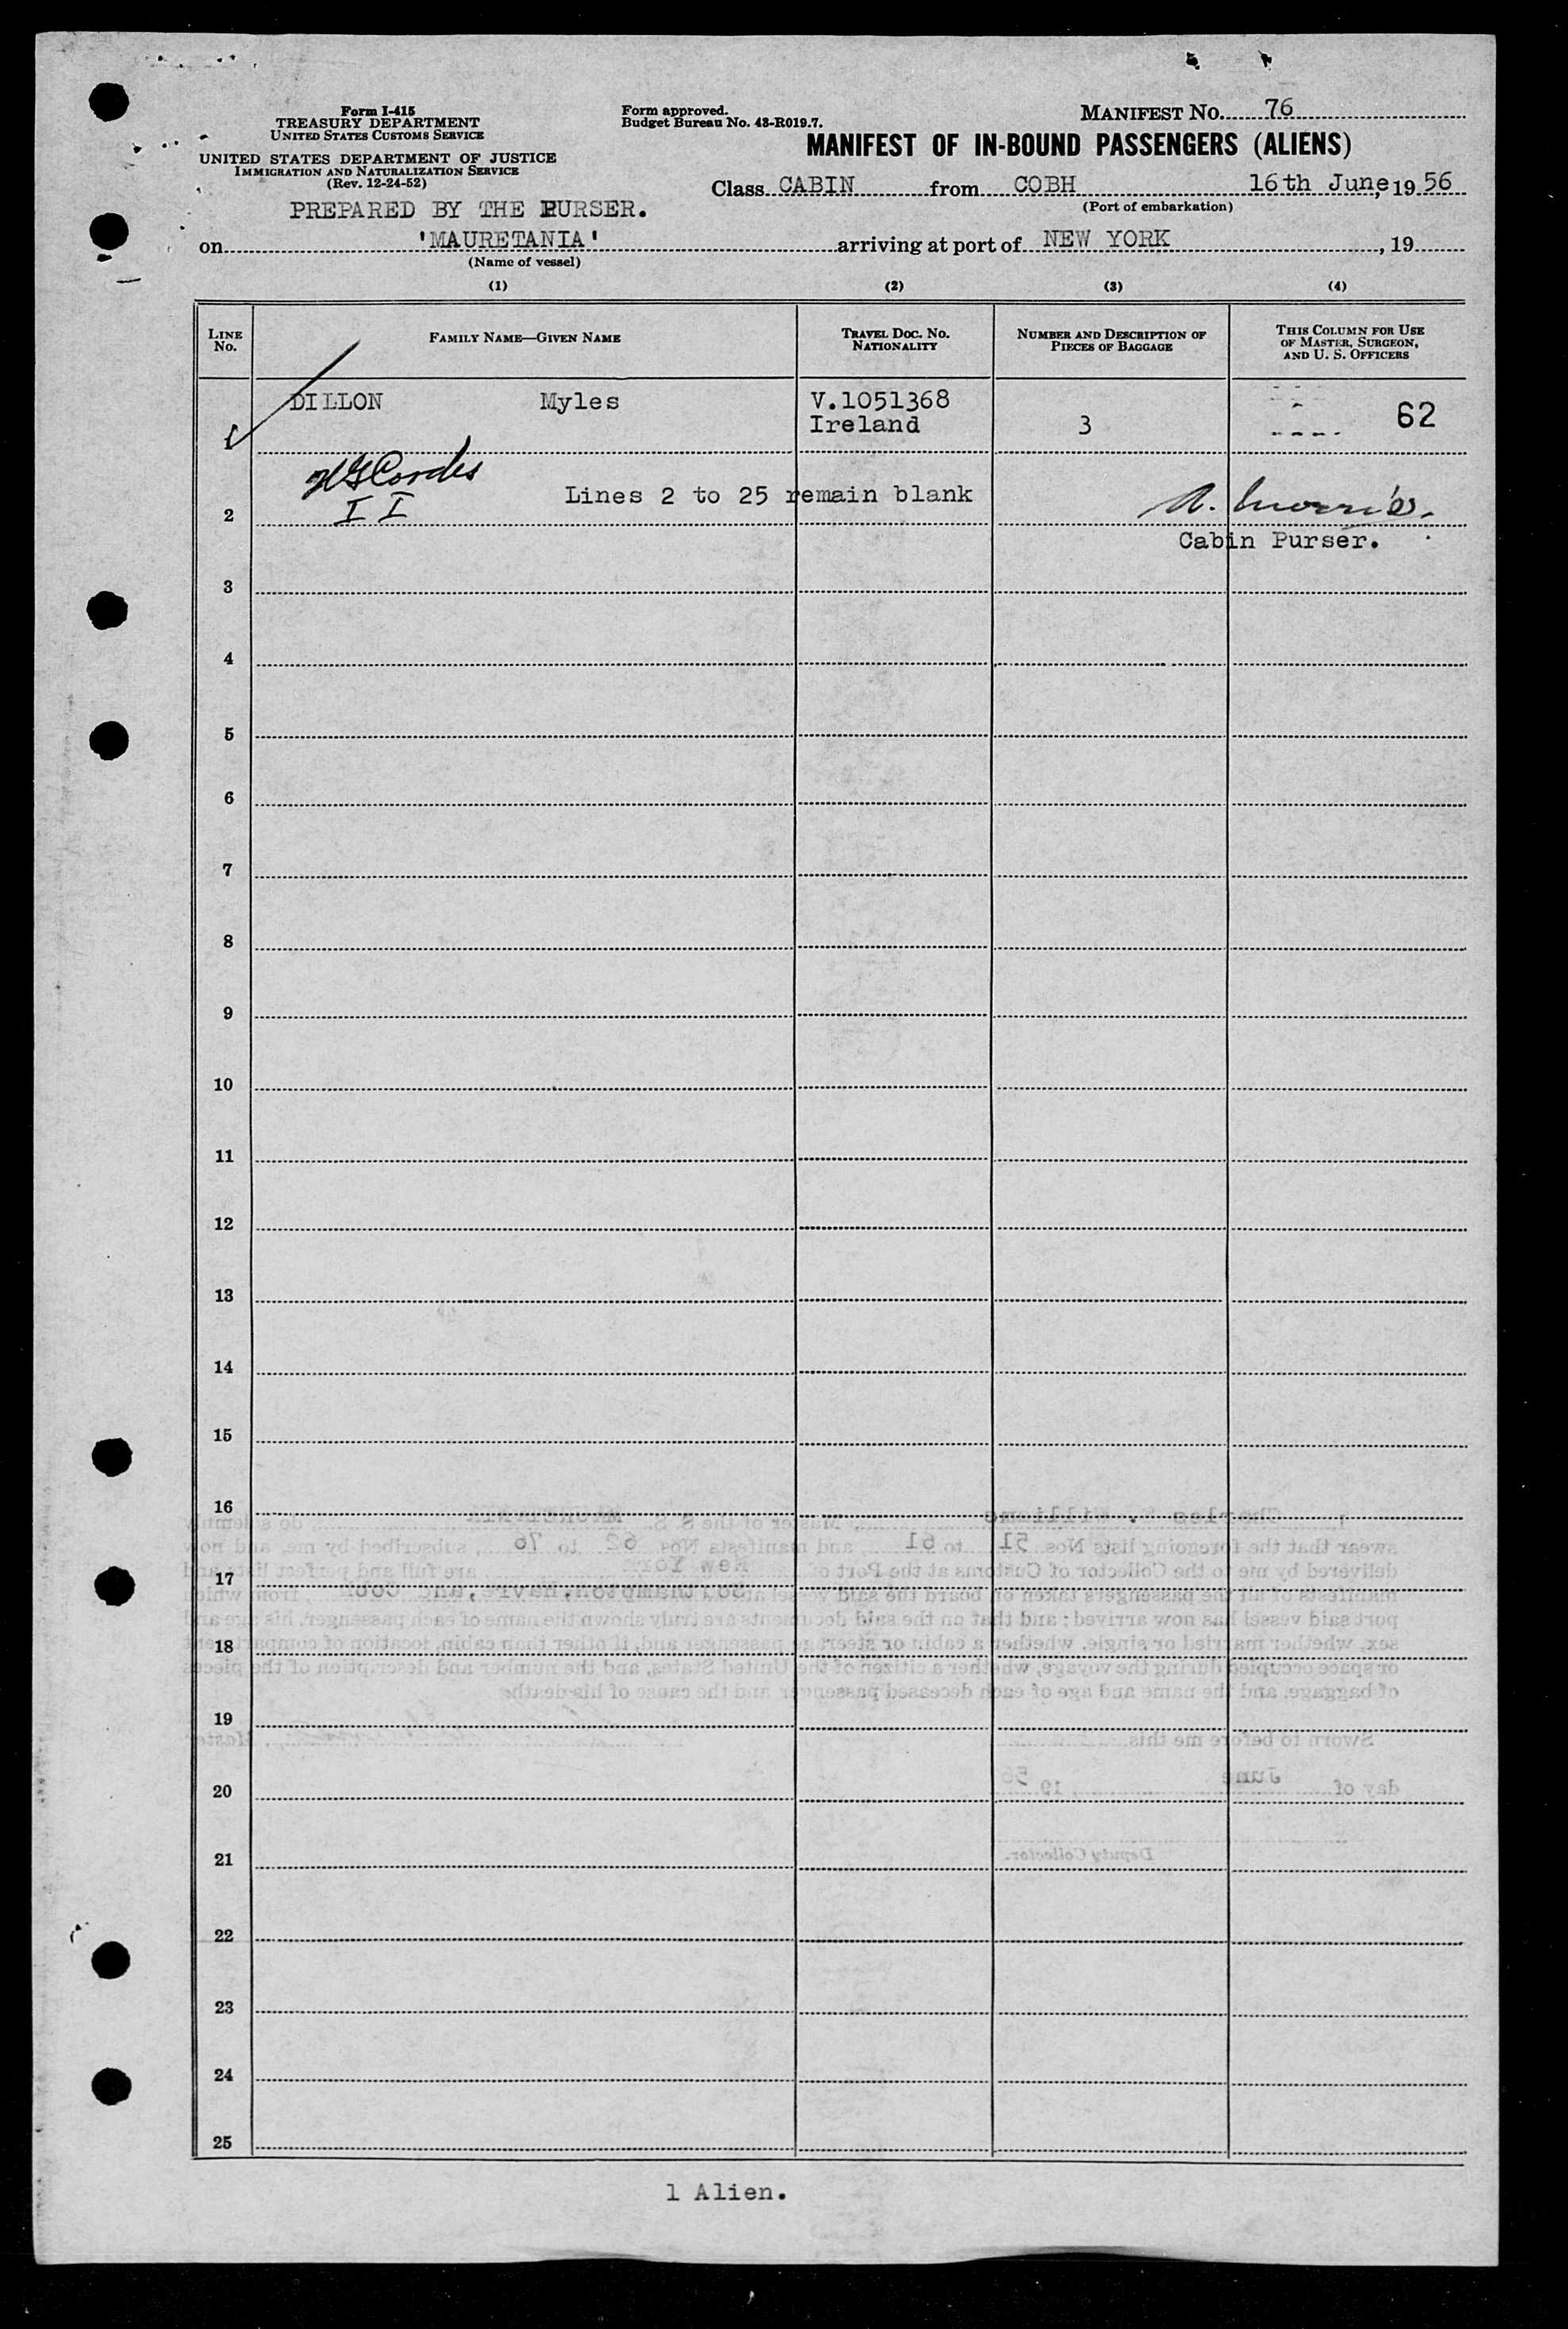 Form I-415
TREASURY DEPARTMENT
UNITED STATES CUSTOMS SERVICE
UNITED STATES DEPARTMENT OF JUSTICE
IMMIGRATION AND NATURALIZATION SERVICE
(Rev. 12-24-52)
Form approved.
Budget Bureau No. 43-R019.7.
MANIFEST No. 76
MANIFEST OF IN-BOUND PASSENGERS (ALIENS)
Class CABIN from COBH 16th June, 1956
(Port of embarkation)
PREPARED BY THE PURSER.
on 'MAURETANIA' arriving at port of NEW YORK, 19
(Name of vessel)
(1) (2) (3) (4)
LINE No.
FAMILY NAME—GIVEN NAME
TRAVEL DOC. No. NATIONALITY
NUMBER AND DESCRIPTION OF PIECES OF BAGGAGE
THIS COLUMN FOR USE OF MASTER, SURGEON, AND U. S. OFFICERS
1 DILLON Myles V.1051368 Ireland 3 62
I I
2 Lines 2 to 25 remain blank
Cabin Purser.
3
4
5
6
7
8
9
10
11
12
13
14
15
16
17
18
19
20
21
22
23
24
25
1 Alien.